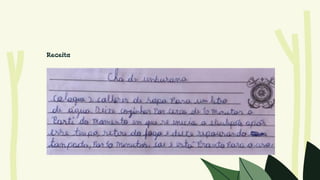 Receita
Chá de umburana
Coloque 2 colheres de sopa para um litro
de água. Deixe cozinhar por cerca de 10 minutos a
Parti do momento em que se inicia a ebulição após
esse tempo retire do fogo e deixe repousando
tampada, Por 10 minutos, coe e está Pronto Para o uso